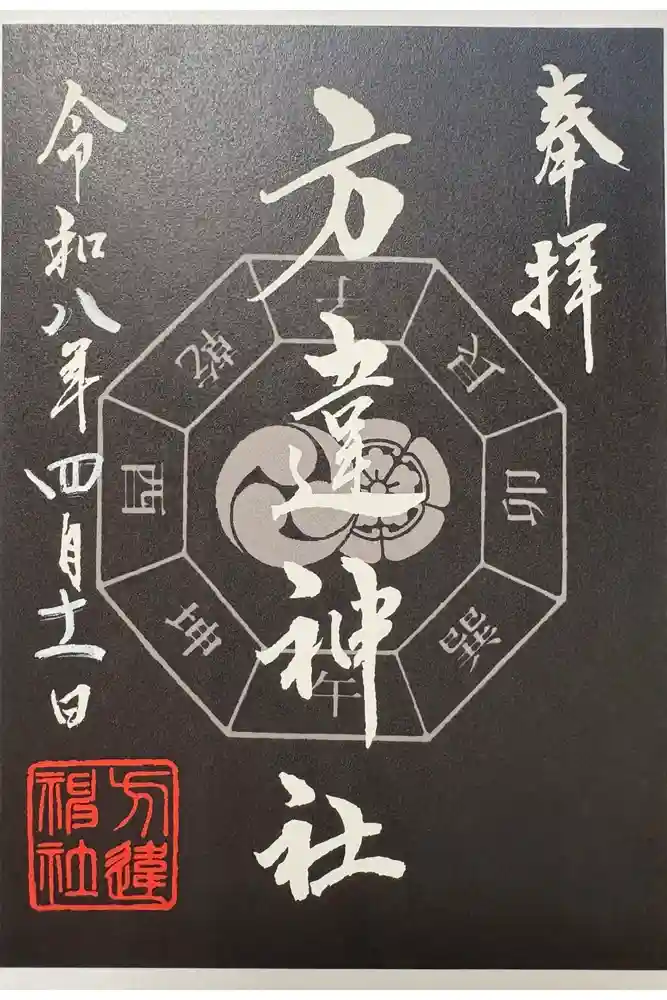 奉拝
方違神社
令和八年四月十一日
子
艮
卯
巽
午
坤
酉
乾
方違
神社